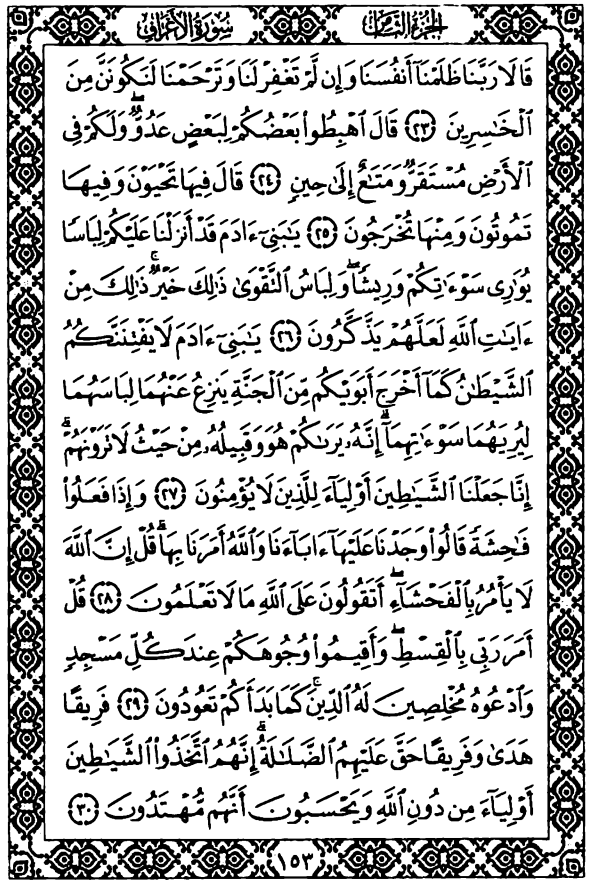 الجزء الثامن
سورة الأعراف
قَالَا رَبَّنَا ظَلَمْنَآ أَنفُسَنَا وَإِن لَّمْ تَغْفِرْ لَنَا وَتَرْحَمْنَا لَنَكُونَنَّ مِنَ
ٱلْخَـٰسِرِينَ ٢٣ قَالَ ٱهْبِطُوا۟ بَعْضُكُمْ لِبَعْضٍ عَدُوٌّ ۖ وَلَكُمْ فِى
ٱلْأَرْضِ مُسْتَقَرٌّ وَمَتَـٰعٌ إِلَىٰ حِينٍ ٢٤ قَالَ فِيهَا تَحْيَوْنَ وَفِيهَا
تَمُوتُونَ وَمِنْهَا تُخْرَجُونَ ٢٥ يَـٰبَنِىٓ ءَادَمَ قَدْ أَنزَلْنَا عَلَيْكُمْ لِبَاسًا
يُوَٰرِى سَوْءَٰتِكُمْ وَرِيشًا ۖ وَلِبَاسُ ٱلتَّقْوَىٰ ذَٰلِكَ خَيْرٌ ۚ ذَٰلِكَ مِنْ
ءَايَـٰتِ ٱللَّهِ لَعَلَّهُمْ يَذَّكَّرُونَ ٢٦ يَـٰبَنِىٓ ءَادَمَ لَا يَفْتِنَنَّكُمُ
ٱلشَّيْطَـٰنُ كَمَآ أَخْرَجَ أَبَوَيْكُم مِّنَ ٱلْجَنَّةِ يَنزِعُ عَنْهُمَا لِبَاسَهُمَا
لِيُرِيَهُمَا سَوْءَٰتِهِمَآ ۗ إِنَّهُۥ يَرَىٰكُمْ هُوَ وَقَبِيلُهُۥ مِنْ حَيْثُ لَا تَرَوْنَهُمْ ۗ
إِنَّا جَعَلْنَا ٱلشَّيَـٰطِينَ أَوْلِيَآءَ لِلَّذِينَ لَا يُؤْمِنُونَ ٢٧ وَإِذَا فَعَلُوا۟
فَـٰحِشَةً قَالُوا۟ وَجَدْنَا عَلَيْهَآ ءَابَآءَنَا وَٱللَّهُ أَمَرَنَا بِهَا ۗ قُلْ إِنَّ ٱللَّهَ
لَا يَأْمُرُ بِٱلْفَحْشَآءِ ۖ أَتَقُولُونَ عَلَى ٱللَّهِ مَا لَا تَعْلَمُونَ ٢٨ قُلْ
أَمَرَ رَبِّى بِٱلْقِسْطِ ۖ وَأَقِيمُوا۟ وُجُوهَكُمْ عِندَ كُلِّ مَسْجِدٍ
وَٱدْعُوهُ مُخْلِصِينَ لَهُ ٱلدِّينَ ۚ كَمَا بَدَأَكُمْ تَعُودُونَ ٢٩ فَرِيقًا
هَدَىٰ وَفَرِيقًا حَقَّ عَلَيْهِمُ ٱلضَّلَـٰلَةُ ۗ إِنَّهُمُ ٱتَّخَذُوا۟ ٱلشَّيَـٰطِينَ
أَوْلِيَآءَ مِن دُونِ ٱللَّهِ وَيَحْسَبُونَ أَنَّهُم مُّهْتَدُونَ ٣٠
١٥٣